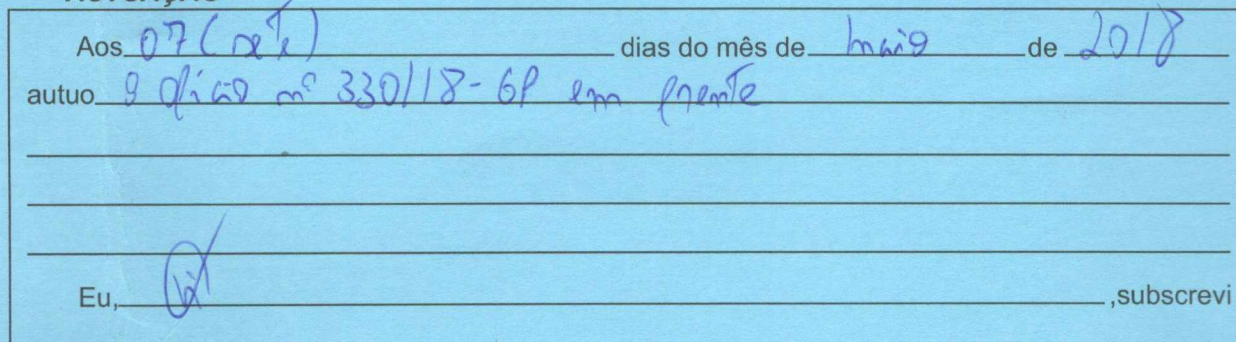 Aos 07 (sete) dias do mês de maio de 2018
autuo o ofício nº 330/18-GP em frente
Eu, ,subscrevi